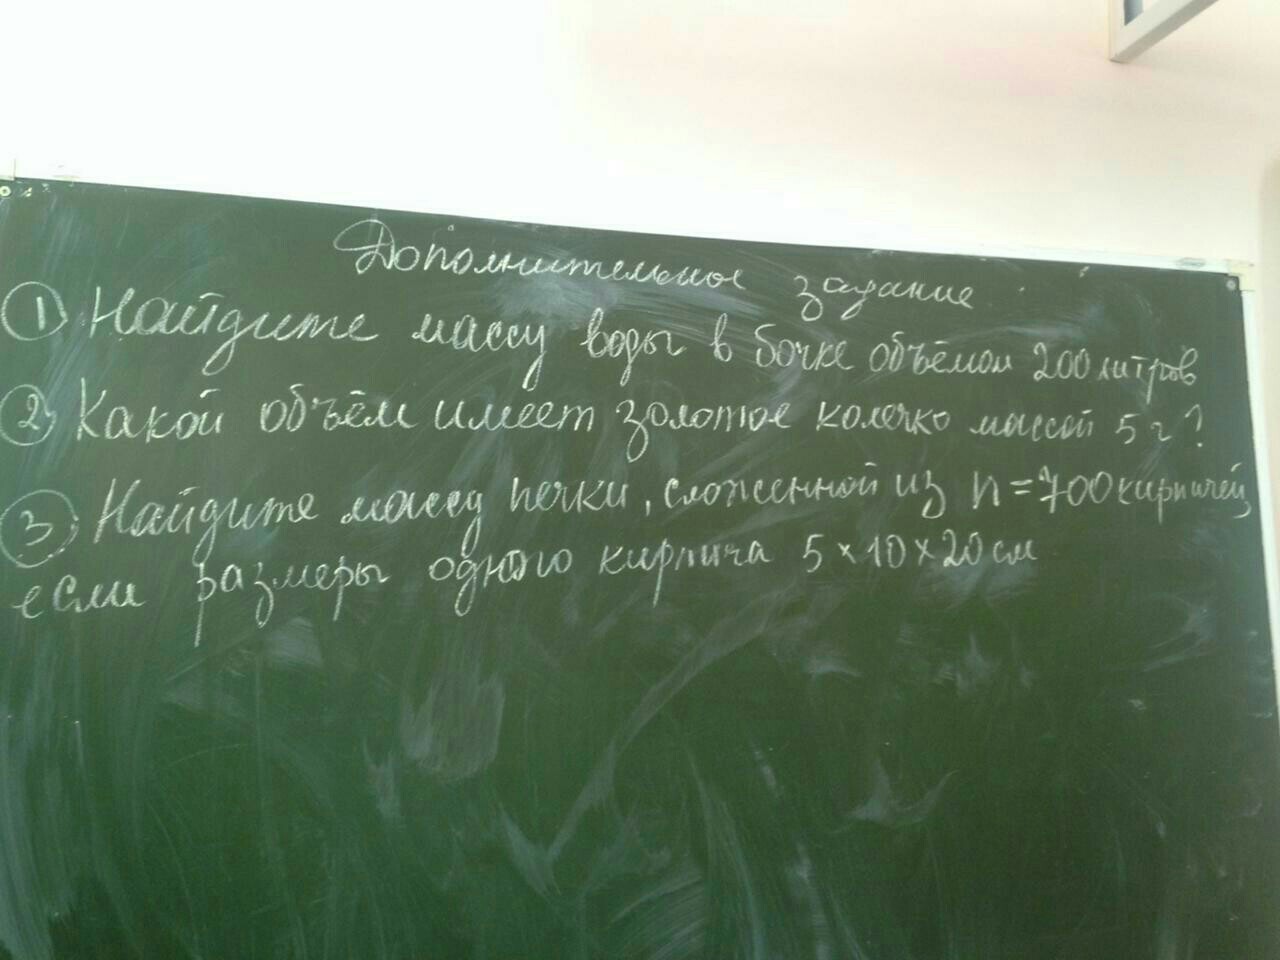 Дополнительное задание
① Найдите массу воды в бочке объёмом 200 литров
② Какой объём имеет золотое колечко массой 5 г?
③ Найдите массу печки, сложенной из n = 700 кирпичей,
если размеры одного кирпича 5 × 10 × 20 см